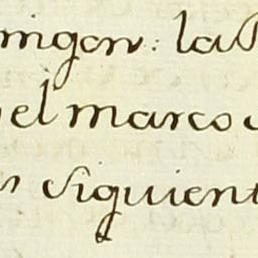 migon: las
el marco
siguient